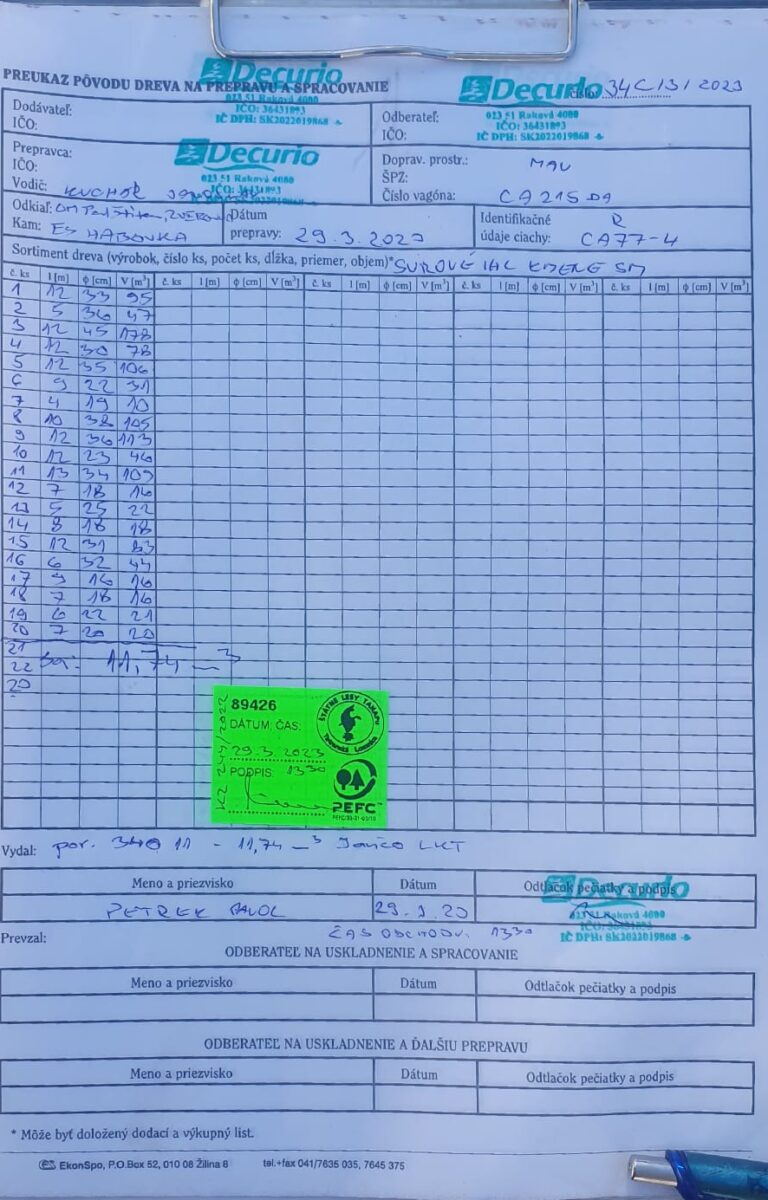 PREUKAZ PÔVODU DREVA NA PREPRAVU A SPRACOVANIE
Decurio
023 51 Raková 4080
IČO: 36431893
IČ DPH: SK2022019868
Decurio
023 51 Raková 4080
IČO: 36431893
IČ DPH: SK2022019868
číslo: 34C/3/2023
Dodávateľ:
IČO:
Odberateľ:
IČO:
Prepravca:
IČO:
Decurio
023 51 Raková 4080
IČO: 36431893
Vodič: KUCHÁR
Doprav. prostr.: MAN
ŠPZ:
Číslo vagóna: CA215DA
Odkiaľ: OM
Kam: ES HABOVKA
Dátum
prepravy: 29.3.2023
Identifikačné R
údaje ciachy: CA77-4
Sortiment dreva (výrobok, číslo ks, počet ks, dĺžka, priemer, objem)* SUROVÉ IHL KMENE SM
č. ks l [m] ϕ [cm] V [m³] č. ks l [m] ϕ [cm] V [m³] č. ks l [m] ϕ [cm] V [m³] č. ks l [m] ϕ [cm] V [m³] č. ks l [m] ϕ [cm] V [m³]
1 12 33 95
2 5 36 47
3 12 45 178
4 12 30 78
5 12 35 106
6 9 22 31
7 4 19 10
8 10 38 105
9 12 36 113
10 12 23 46
11 13 34 109
12 7 18 16
13 5 25 22
14 8 18 18
15 12 31 83
16 6 32 44
17 9 16 16
18 7 18 16
19 6 22 21
20 7 20 20
21
22 11,74 m³
23
89426
DÁTUM, ČAS:
29.3.2023
PODPIS: 13 30
KZ 245/2022
ŠTÁTNE LESY TANAPU
Tatranská Lomnica
PEFC™
Vydal: por. 340 11 - 11,74 m³ LKT
Meno a priezvisko Dátum Odtlačok pečiatky a podpis
PETREK PAVOL 29.3.23
Decurio
023 51 Raková 4080
IČO: 36431893
IČ DPH: SK2022019868
Prevzal: ČAS 13 30
ODBERATEĽ NA USKLADNENIE A SPRACOVANIE
Meno a priezvisko Dátum Odtlačok pečiatky a podpis
ODBERATEĽ NA USKLADNENIE A ĎALŠIU PREPRAVU
Meno a priezvisko Dátum Odtlačok pečiatky a podpis
* Môže byť doložený dodací a výkupný list.
EkonSpo, P.O.Box 52, 010 08 Žilina 8 tel.+fax 041/7635 035, 7645 375